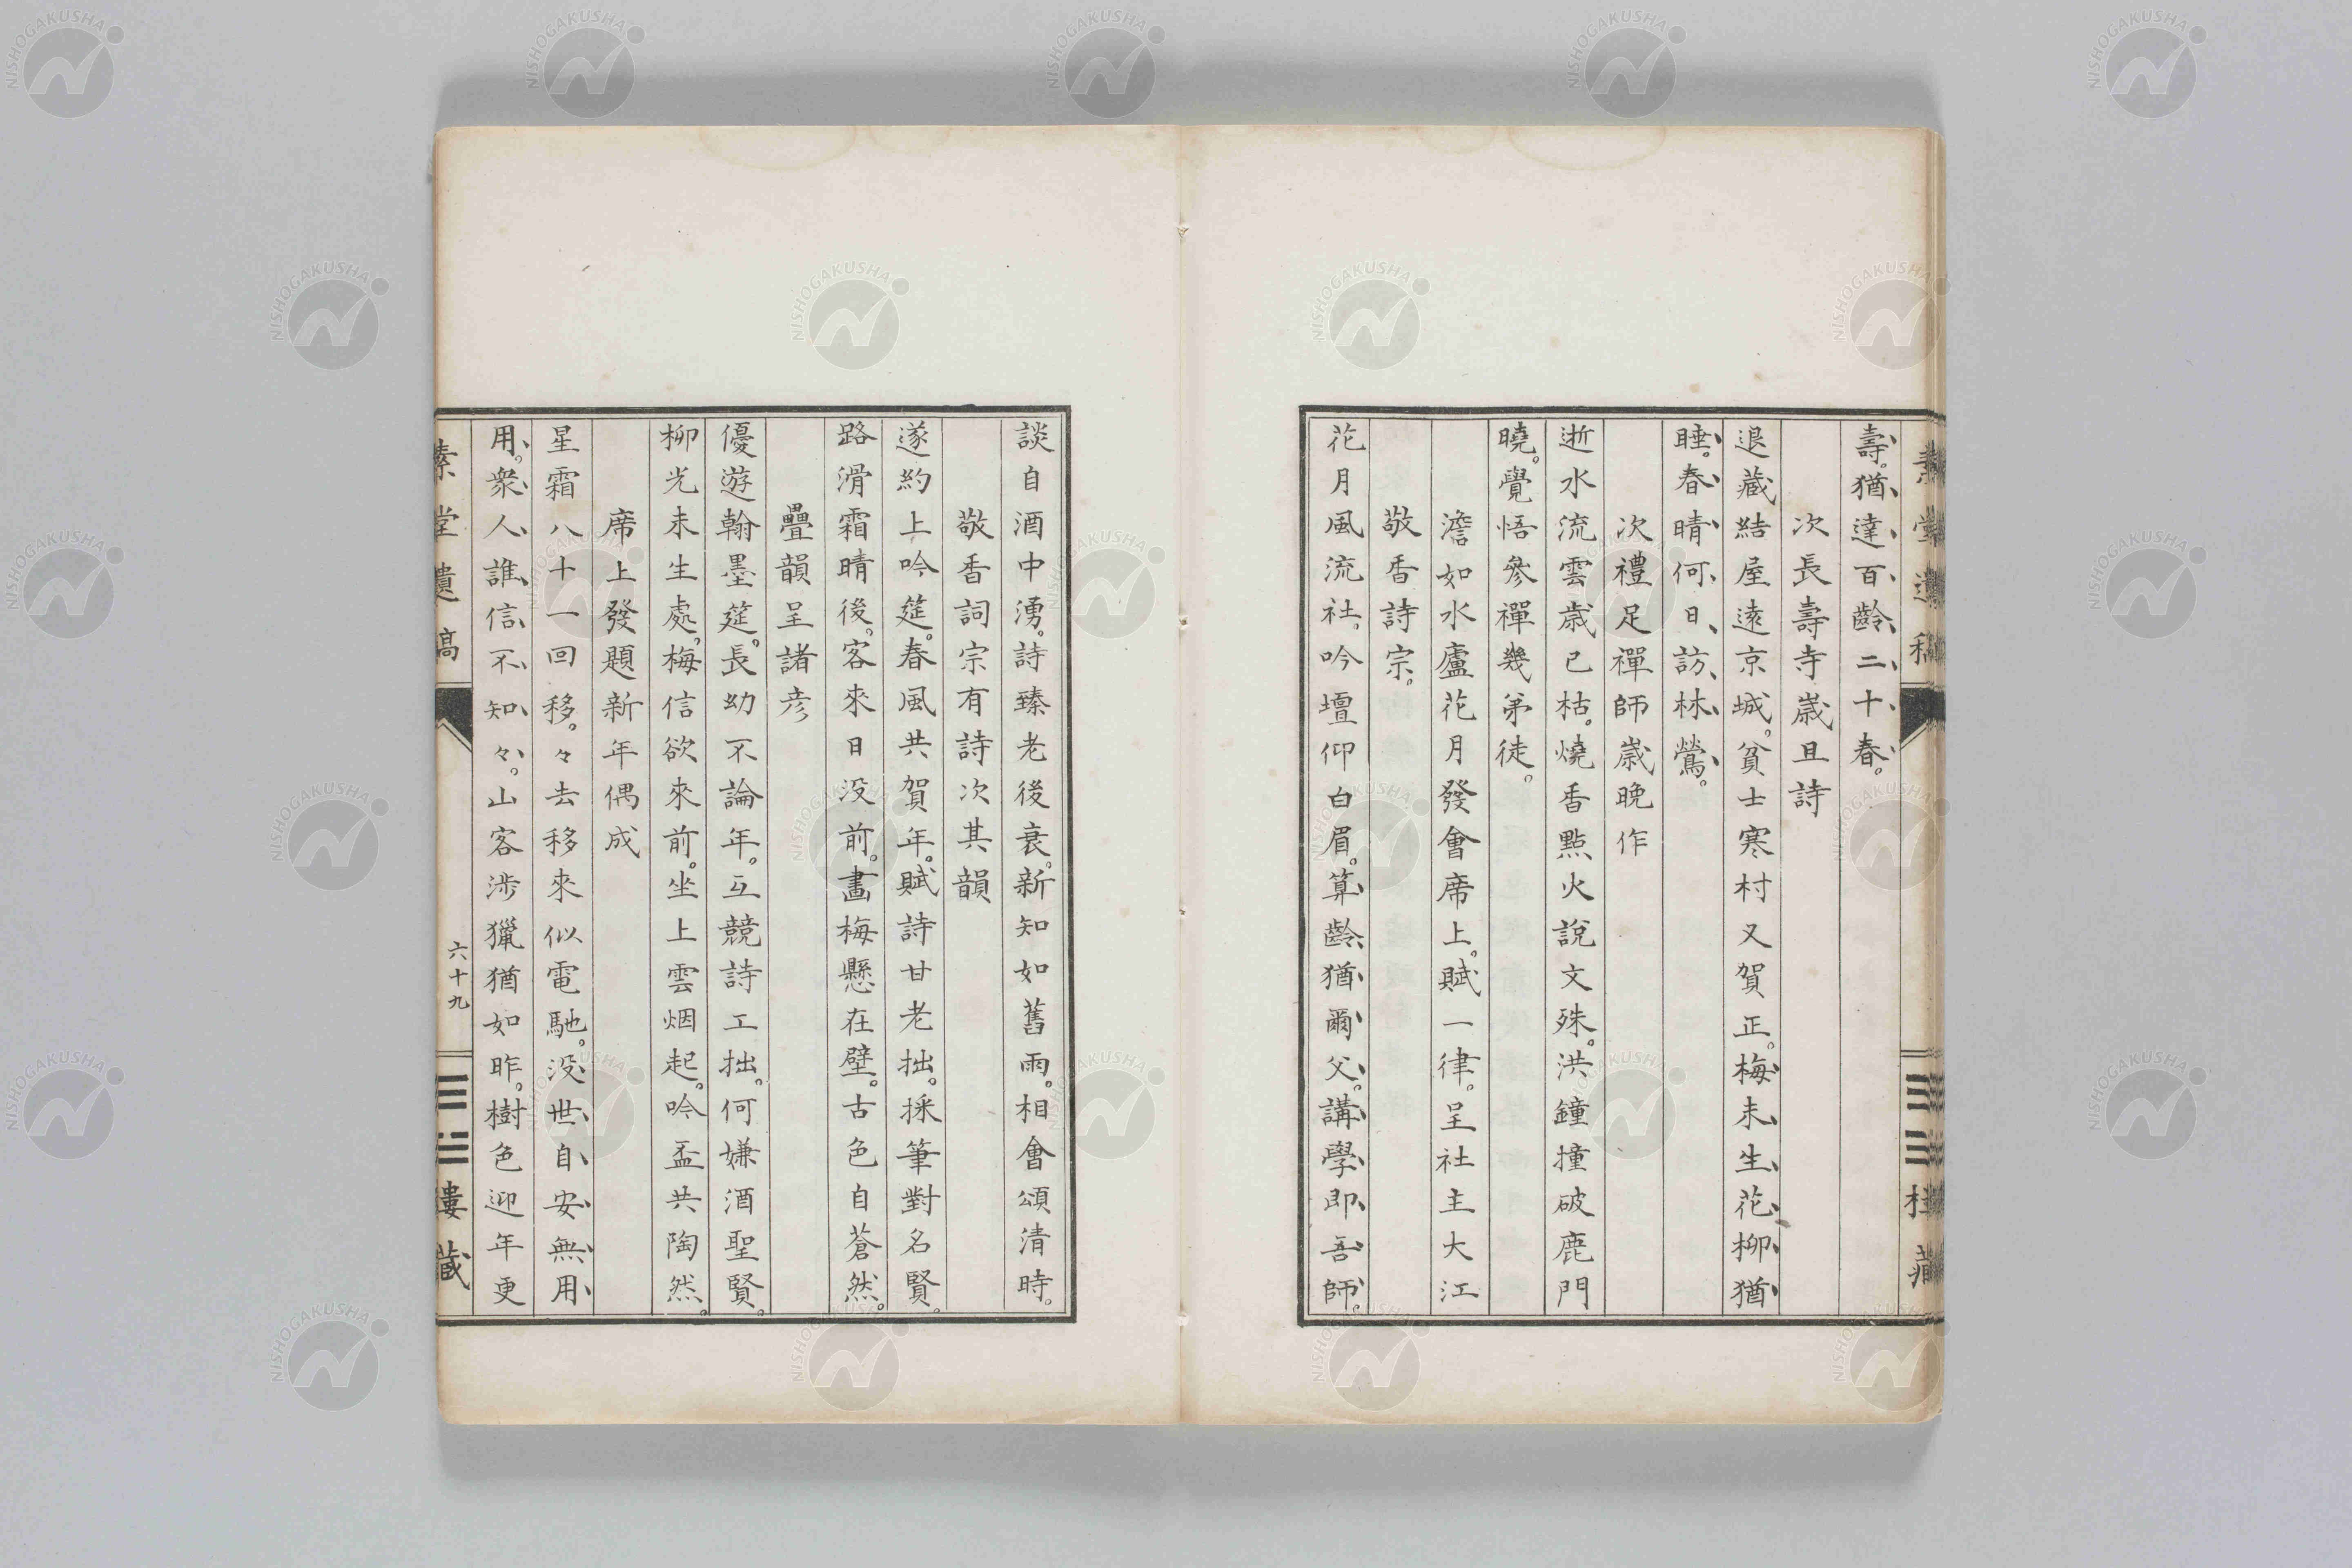 壽。猶達百齡二十春。
次長壽寺歳旦詩
退藏結屋遠京城。貧士寒村又賀正。梅未生花柳猶
睡。春晴何日訪林鶯。
次禮足禪師歳晩作
逝水流雲歳已枯。燒香點火說文殊。洪鐘撞破鹿門
曉。覺悟參禪幾弟徒。
澹如水廬花月發會席上。賦一律。呈社主大江
敬香詩宗。
花月風流社。吟壇仰白眉。算齡猶爾父。講學即吾師。
談自酒中湧。詩臻老後衰。新知如舊雨。相會頌清時。
敬香詞宗有詩次其韻
遂約上吟筵。春風共賀年。賦詩甘老拙。採筆對名賢。
路滑霜晴後。客來日没前。畵梅懸在壁。古色自蒼然。
疊韻呈諸彦
優遊翰墨筵。長幼不論年。互競詩工拙。何嫌酒聖賢。
柳光未生處。梅信欲來前。坐上雲烟起。吟盃共陶然。
席上發題新年偶成
星霜八十一回移。々去移來似電馳。没世自安無用
用。衆人誰信不知々。山客渉獵猶如昨。樹色迎年更
素堂遺稿
六十九
樓藏
NISHOGAKUSHA